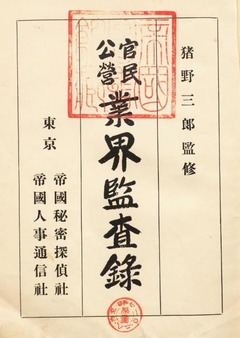 猪野三郎監修
官民
公營
業界監査錄
東京
帝國秘密探偵社
帝國人事通信社